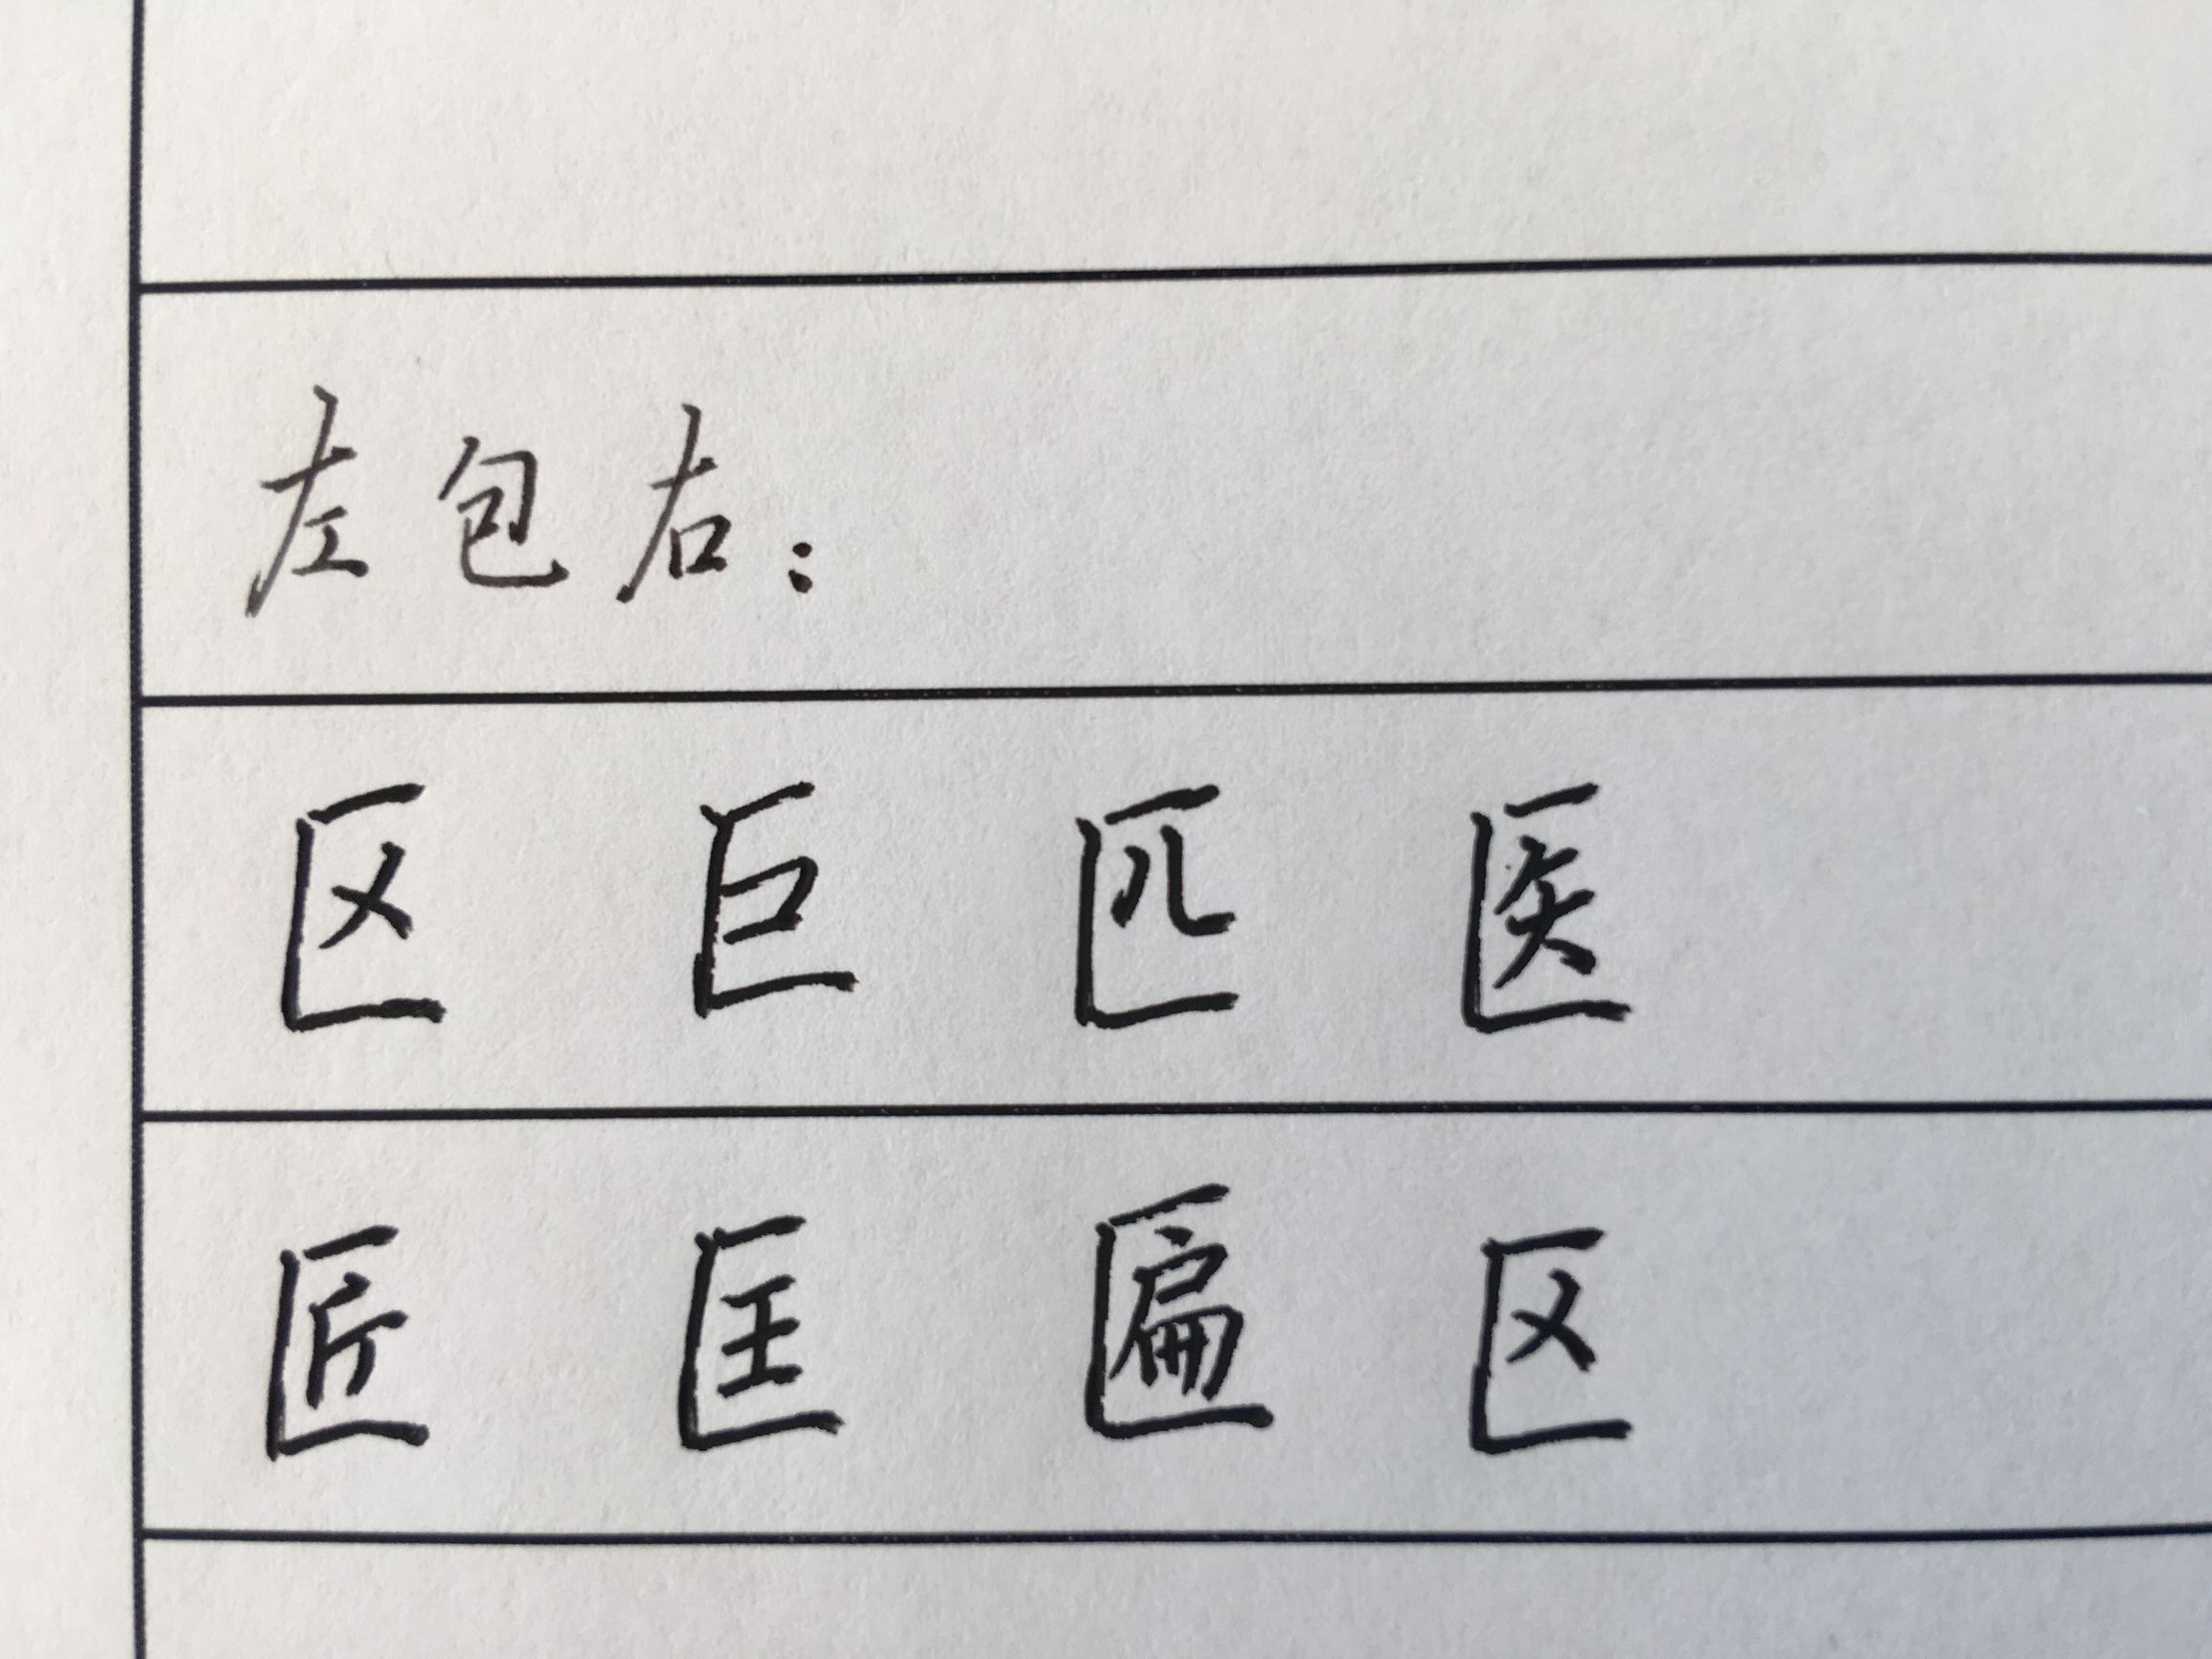 左包右：
区 巨 匹 医
匠 匡 匾 区